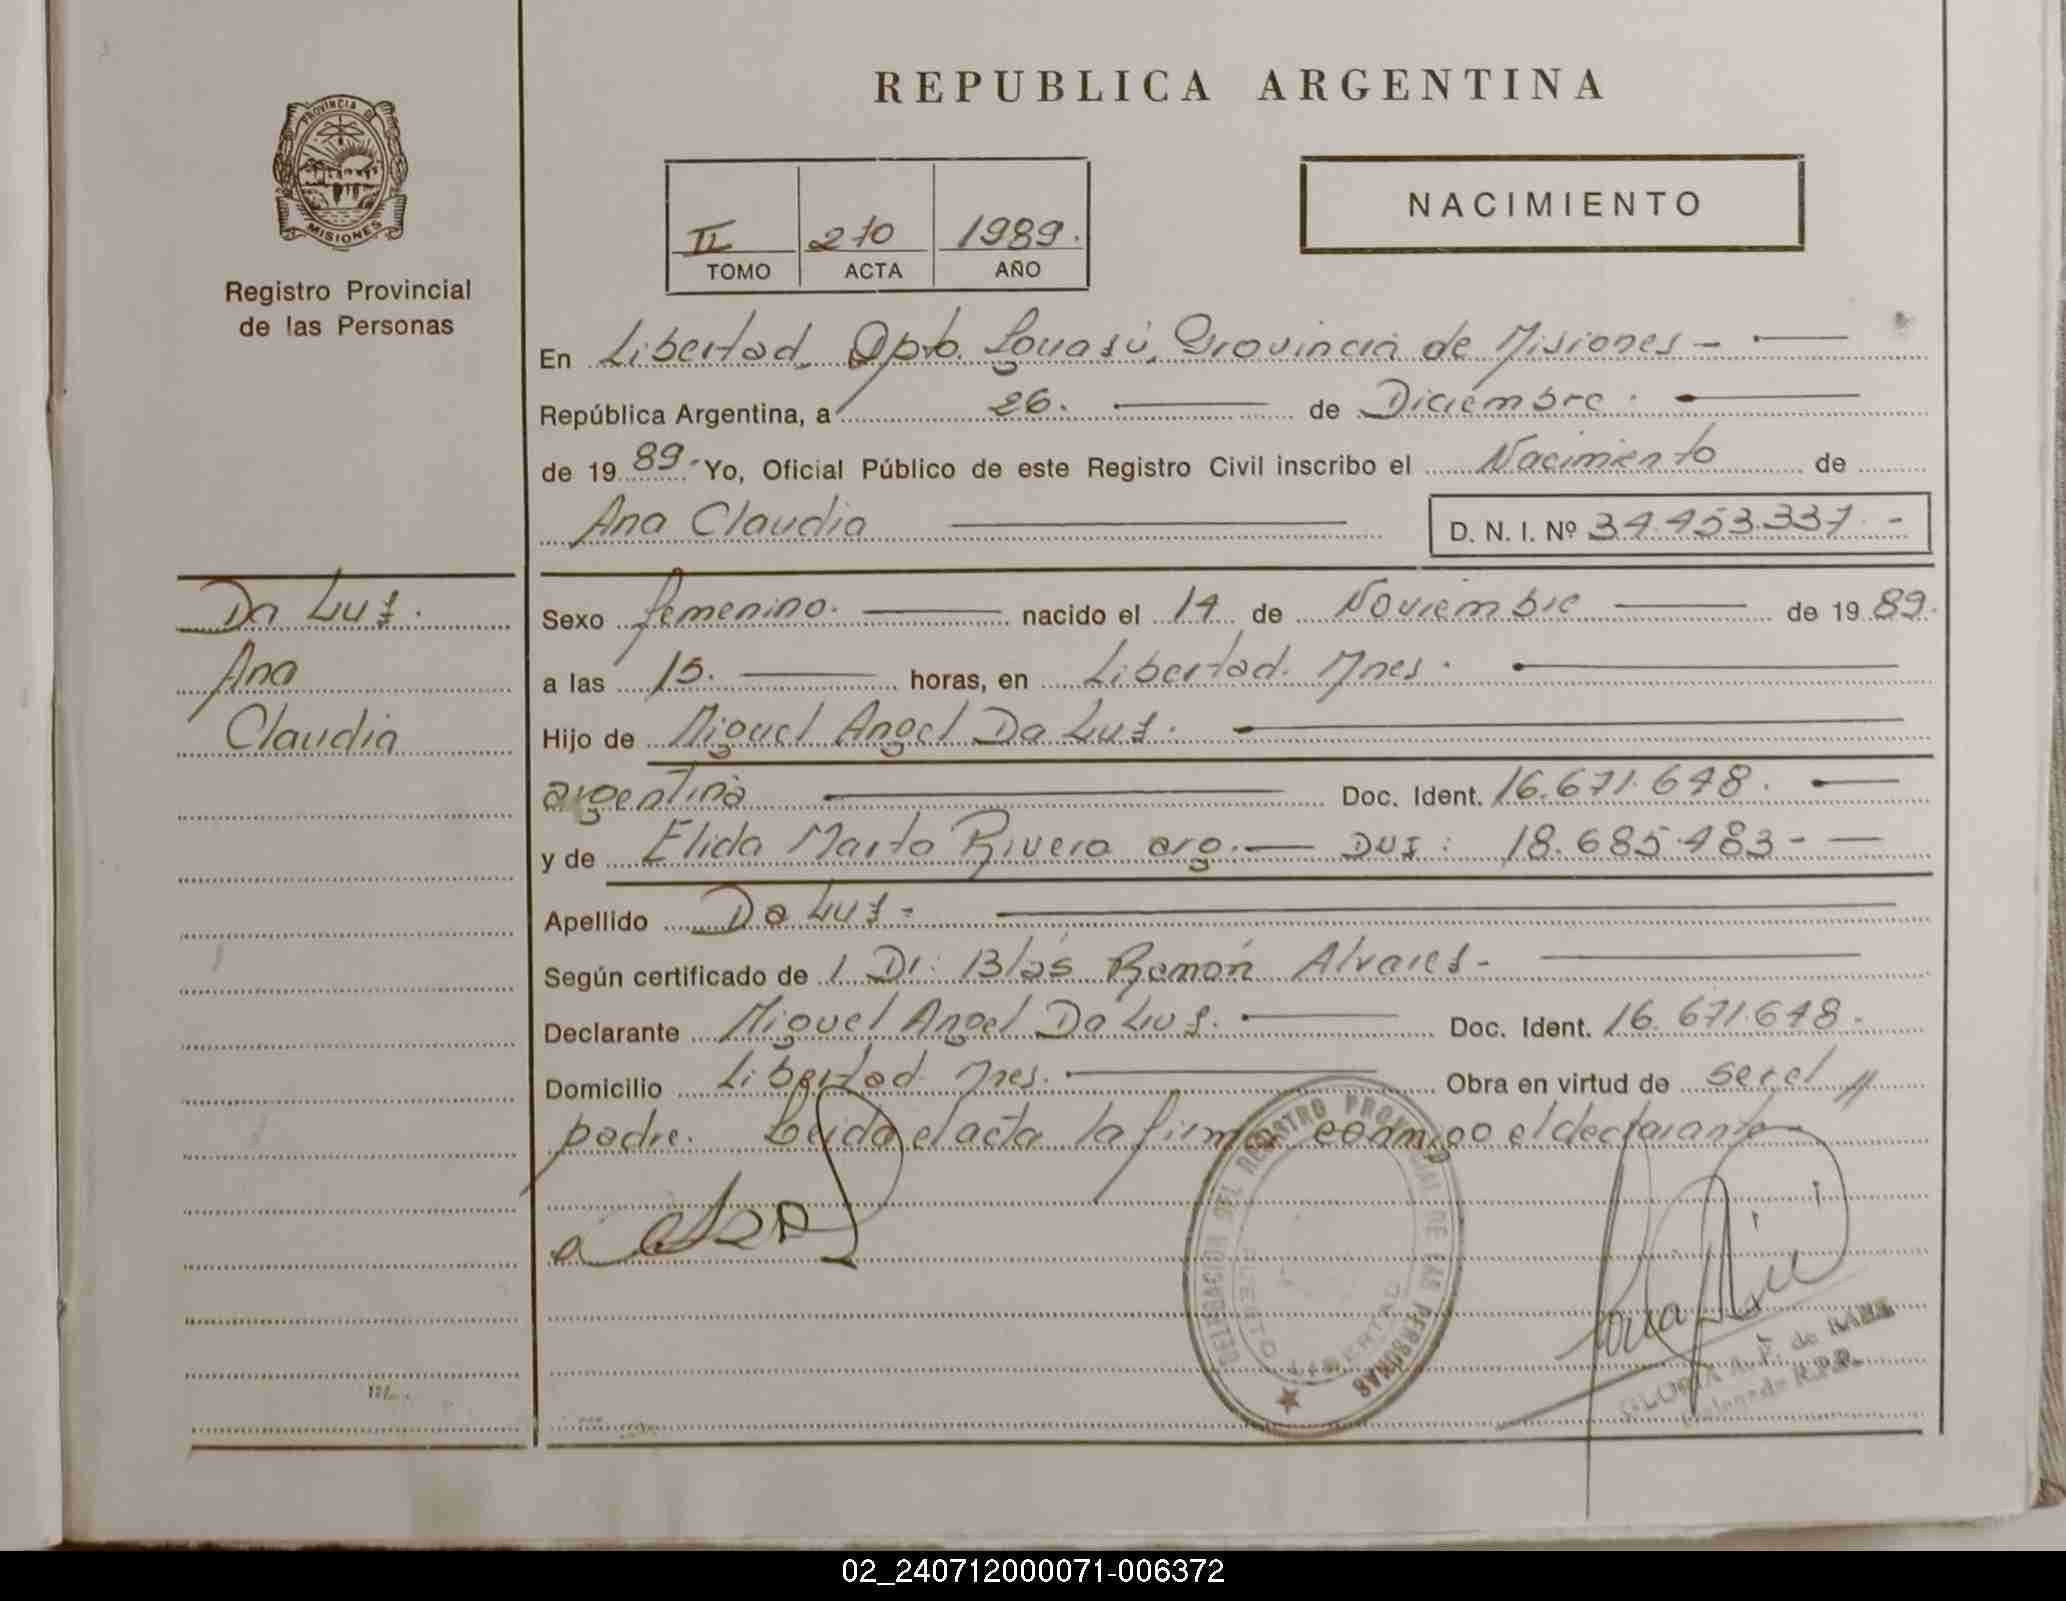 REPUBLICA ARGENTINA
PROVINCIA DE
MISIONES
Registro Provincial
de las Personas
II 210 1989.
TOMO ACTA AÑO
NACIMIENTO
En Libertad Dpto. Iguasú, Provincia de Misiones -
República Argentina, a 26. de Diciembre.
de 19 89- Yo, Oficial Público de este Registro Civil inscribo el Nacimiento de
Ana Claudia
D. N. I. Nº 34.453.337. -
Da Luz.
Ana
Claudia
Sexo femenino. nacido el 14 de Noviembre de 19 89.
a las 15. horas, en Libertad. Mnes.
Hijo de Miguel Angel Da Luz.
argentina Doc. Ident. 16.671.648.
y de Elida Marta Rivero arg. DUI: 18.685.483 -
Apellido Da Luz -
Según certificado de l Dr: Blás Ramón Alvares -
Declarante Miguel Angel Da Luz. Doc. Ident. 16.671.648.
Domicilio Libertad. Mnes. Obra en virtud de ser el
padre. Leida el acta la firma conmigo el declarante
DELEGACION DEL REGISTRO PROVINCIAL DE LAS PERSONAS
PUERTO LIBERTAD
GLORIA A. F. de
Delegada R.P.P.
02_240712000071-006372